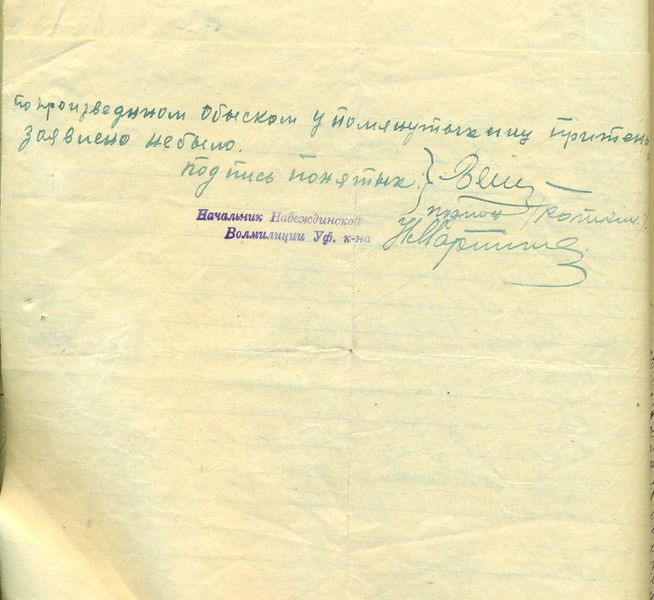 попроизведином Обыском упомянутых лиц притень
заявлено небыло.
Подпись понятых:
Начальник Навеждинской
Волмилиции Уф. к-на
Н Мартина